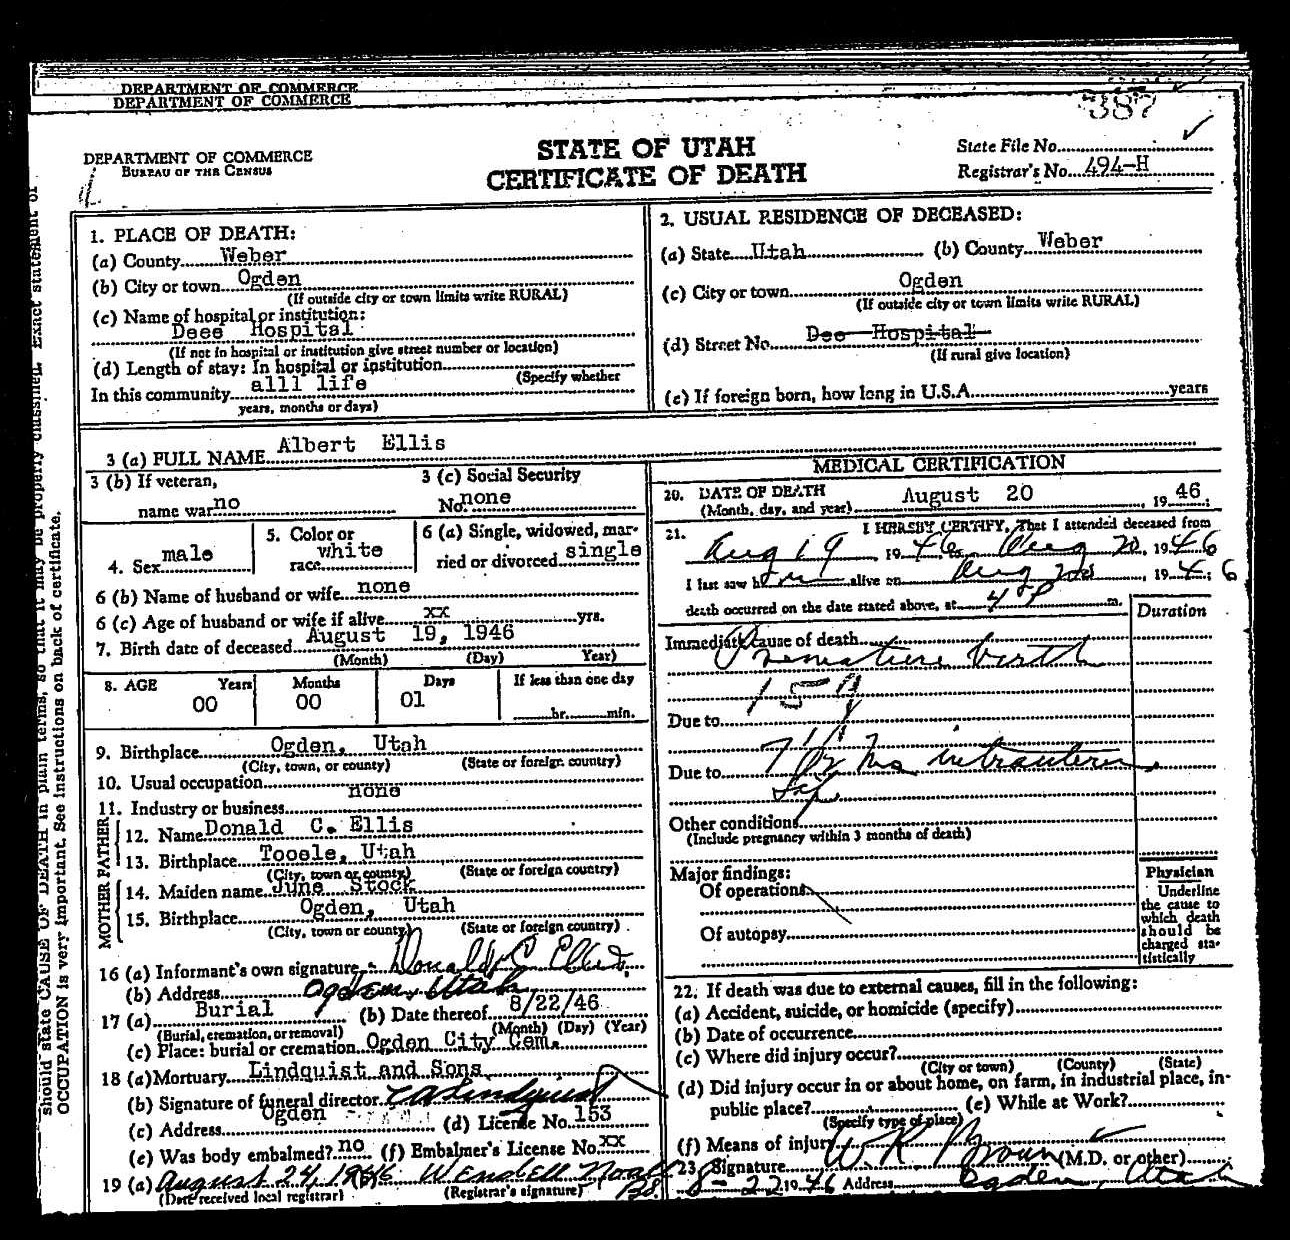 DEPARTMENT OF COMMERCE
DEPARTMENT OF COMMERCE
387
DEPARTMENT OF COMMERCE
BUREAU OF THE CENSUS
STATE OF UTAH
CERTIFICATE OF DEATH
State File No.
Registrar's No. 494-H
1. PLACE OF DEATH:
(a) County Weber
(b) City or town Ogden
(If outside city or town limits write RURAL)
(c) Name of hospital or institution:
Deee Hospital
(If not in hospital or institution give street number or location)
(d) Length of stay: In hospital or institution
(Specify whether
In this community alll life
years, months or days)
2. USUAL RESIDENCE OF DECEASED:
(a) State Utah (b) County Weber
(c) City or town Ogden
(If outside city or town limits write RURAL)
(d) Street No. Dee Hospital
(If rural give location)
(e) If foreign born, how long in U.S.A. years
3 (a) FULL NAME Albert Ellis
3 (b) If veteran,
name war no
3 (c) Social Security
No. none
4. Sex male
5. Color or
race white
6 (a) Single, widowed, mar-
ried or divorced single
6 (b) Name of husband or wife none
6 (c) Age of husband or wife if alive xx yrs.
7. Birth date of deceased August 19, 1946
(Month) (Day) Year)
8. AGE Years Months Days If less than one day
00 00 01 hr. min.
9. Birthplace Ogden, Utah
(City, town, or county) (State or foreign country)
10. Usual occupation none
11. Industry or business
FATHER
12. Name Donald C. Ellis
13. Birthplace Tooele, Utah
(City, town or county) (State or foreign country)
MOTHER
14. Maiden name June Stock
15. Birthplace Ogden, Utah
(City, town or county) (State or foreign country)
16 (a) Informant's own signature Donald C Ellis
(b) Address Ogden, Utah
17 (a) Burial (b) Date thereof 8/22/46
(Burial, cremation, or removal) (Month) (Day) (Year)
(c) Place: burial or cremation Ogden City Cem.
18 (a) Mortuary Lindquist and Sons
(b) Signature of funeral director
(c) Address Ogden (d) License No. 153
(e) Was body embalmed? no (f) Embalmer's License No. xx
19 (a) August 24, 1946 Wendell Noall
(Date received local registrar) (Registrar's signature)
MEDICAL CERTIFICATION
20. DATE OF DEATH August 20, 1946;
(Month, day, and year)
21. I HEREBY CERTIFY, That I attended deceased from
Aug 19 1946 Aug 20, 1946
I last saw him alive on Aug 20, 1946;
death occurred on the date stated above, at 4 m.
Duration
Immediate cause of death
Premature birth
15
Due to
Due to 7 1/2 Mo intrauterine
Other conditions
(Include pregnancy within 3 months of death)
Major findings:
Of operations
Of autopsy
Physician
Underline
the cause to
which death
should be
charged sta-
tistically
22. If death was due to external causes, fill in the following:
(a) Accident, suicide, or homicide (specify)
(b) Date of occurrence
(c) Where did injury occur?
(City or town) (County) (State)
(d) Did injury occur in or about home, on farm, in industrial place, in-
public place? (e) While at Work?
(Specify type of place)
(f) Means of injury
23. Signature W R Brown (M.D. or other)
8-22 1946 Address Ogden, Utah
should state CAUSE OF DEATH in plain terms, so that it may be properly classified. Exact statement of
OCCUPATION is very important. See instructions on back of certificate.